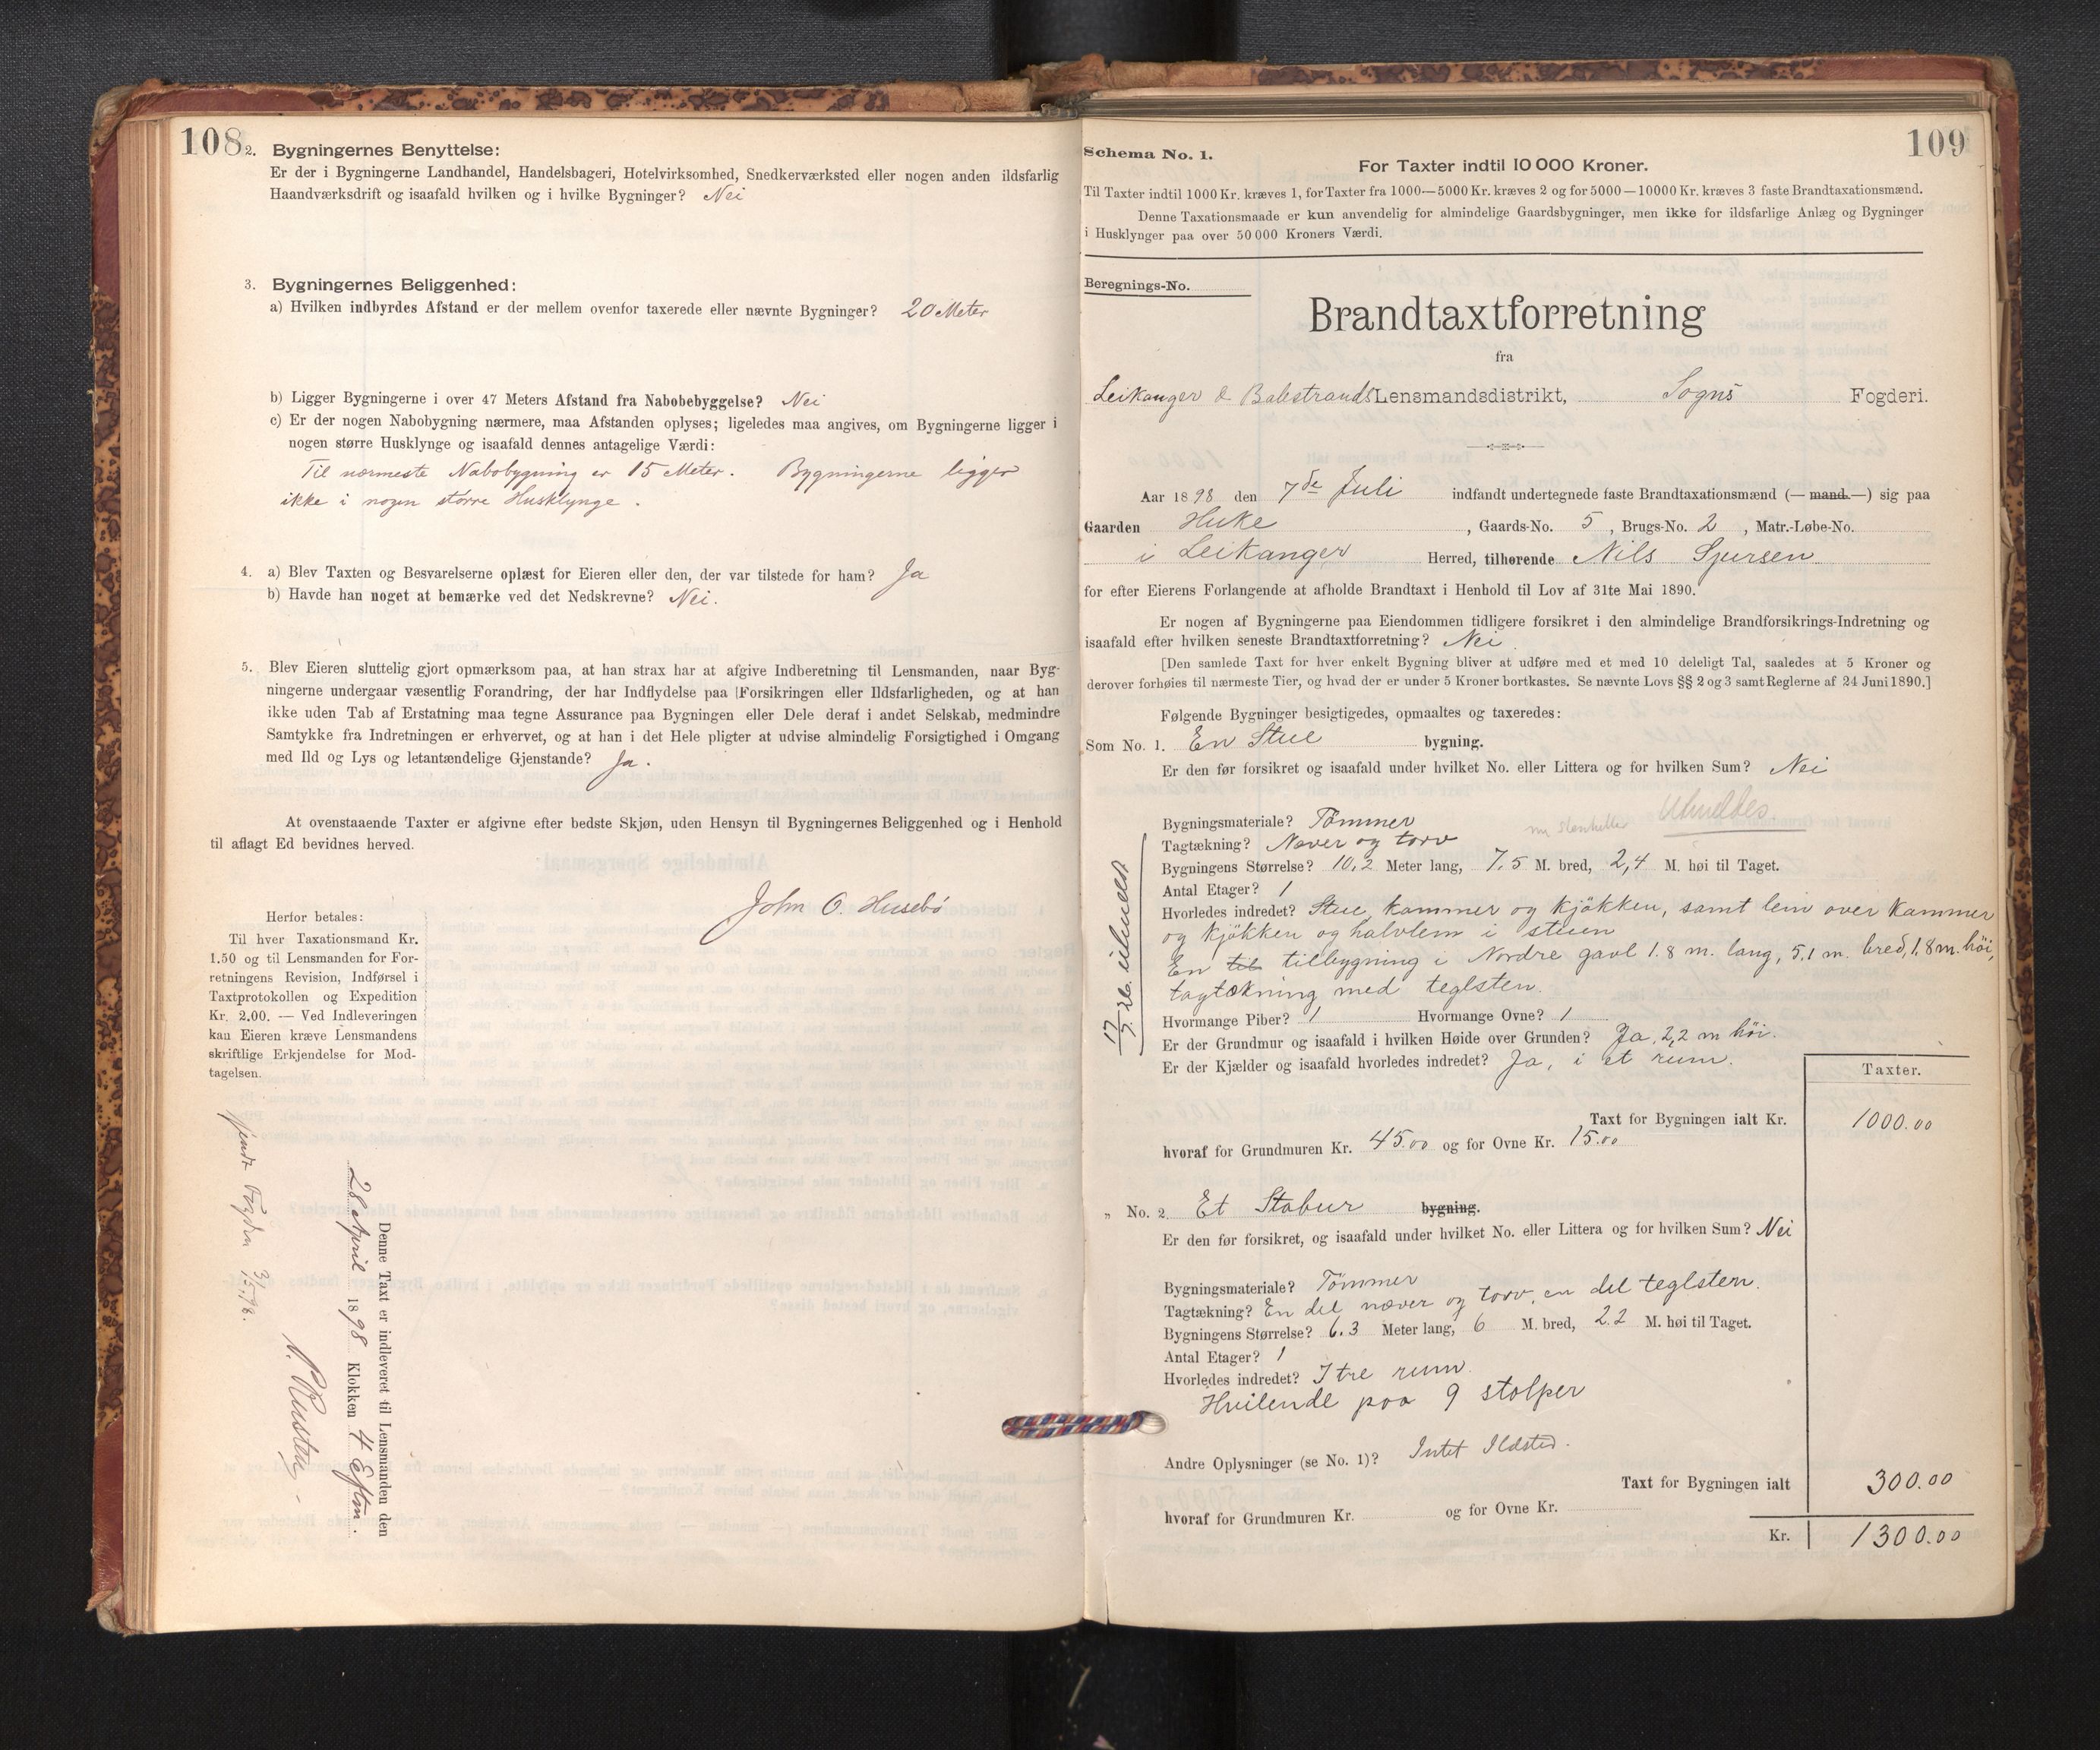 108
2. Bygningernes Benyttelse:
Er der i Bygningerne Landhandel, Handelsbageri, Hotelvirksomhed, Snedkerværksted eller nogen anden ildsfarlig
Haandværksdrift og isaafald hvilken og i hvilke Bygninger? Nei
3. Bygningernes Beliggenhed:
a) Hvilken indbyrdes Afstand er der mellem ovenfor taxerede eller nævnte Bygninger? 20 Meter
b) Ligger Bygningerne i over 47 Meters Afstand fra Nabobebyggelse? Nei
c) Er der nogen Nabobygning nærmere, maa Afstanden oplyses; ligeledes maa angives, om Bygningerne ligger i
nogen større Husklynge og isaafald dennes antagelige Værdi:
Til nærmeste Nabobygning er 15 Meter. Bygningerne ligger
ikke i nogen större Husklynge.
4. a) Blev Taxten og Besvarelserne oplæst for Eieren eller den, der var tilstede for ham? Ja
b) Havde han noget at bemærke ved det Nedskrevne? Nei.
5. Blev Eieren sluttelig gjort opmærksom paa, at han strax har at afgive Indberetning til Lensmanden, naar Byg-
ningerne undergaar væsentlig Forandring, der har Indflydelse paa Forsikringen eller Ildsfarligheden, og at han
ikke uden Tab af Erstatning maa tegne Assurance paa Bygningen eller Dele deraf i andet Selskab, medmindre
Samtykke fra Indretningen er erhvervet, og at han i det Hele pligter at udvise almindelig Forsigtighed i Omgang
med Ild og Lys og letantændelige Gjenstande? Ja.
At ovenstaaende Taxter er afgivne efter bedste Skjøn, uden Hensyn til Bygningernes Beliggenhed og i Henhold
til aflagt Ed bevidnes herved.
John O. Husebö
Herfor betales:
Til hver Taxationsmand Kr.
1.50 og til Lensmanden for For-
retningens Revision, Indførsel i
Taxtprotokollen og Expedition
Kr. 2.00. — Ved Indleveringen
kan Eieren kræve Lensmandens
skriftlige Erkjendelse for Mod-
tagelsen.
Denne Taxt er indleveret til Lensmanden den
28 April 1898 Klokken 4 Eftm.
109
Schema No. 1.
For Taxter indtil 10 000 Kroner.
Til Taxter indtil 1000 Kr. kræves 1, for Taxter fra 1000—5000 Kr. kræves 2 og for 5000—10000 Kr. kræves 3 faste Brandtaxationsmænd.
Denne Taxationsmaade er kun anvendelig for almindelige Gaardsbygninger, men ikke for ildsfarlige Anlæg og Bygninger
i Husklynger paa over 50 000 Kroners Værdi.
Beregnings-No.
Brandtaxtforretning
fra
Leikanger & Balestrands Lensmandsdistrikt, Sogns Fogderi.
Aar 1898 den 7de Juli indfandt undertegnede faste Brandtaxationsmænd (— mand —) sig paa
Gaarden Huke, Gaards-No. 5, Brugs-No. 2, Matr.-Løbe-No.
i Leikanger Herred, tilhørende Nils Sjursen
for efter Eierens Forlangende at afholde Brandtaxt i Henhold til Lov af 31te Mai 1890.
Er nogen af Bygningerne paa Eiendommen tidligere forsikret i den almindelige Brandforsikrings-Indretning og
isaafald efter hvilken seneste Brandtaxtforretning? Nei
[Den samlede Taxt for hver enkelt Bygning bliver at udføre med et med 10 deleligt Tal, saaledes at 5 Kroner og
derover forhøies til nærmeste Tier, og hvad der er under 5 Kroner bortkastes. Se nævnte Lovs §§ 2 og 3 samt Reglerne af 24 Juni 1890.]
Følgende Bygninger besigtigedes, opmaaltes og taxeredes:
Som No. 1. En Stue bygning.
Er den før forsikret og isaafald under hvilket No. eller Littera og for hvilken Sum? Nei
Utmeldes
Bygningsmateriale? Tömmer
Tagtækning? Næver og torv
Bygningens Størrelse? 10,2 Meter lang, 7.5 M. bred, 2,4 M. høi til Taget.
Antal Etager? 1
Hvorledes indredet? Stue, kammer og kjökken, samt lem over kammer
og kjökken og halvlem i stuen
En til tilbygning i Nordre gavl 1.8 m. lang, 5,1 m. bred, 1,8 m. höi,
tagtækning med teglsten.
Hvormange Piber? 1 Hvormange Ovne? 1
Er der Grundmur og isaafald i hvilken Høide over Grunden? Ja, 2,2 m höi.
Er der Kjælder og isaafald hvorledes indredet? Ja, i et rum.
Taxter.
Taxt for Bygningen ialt Kr. 1000.00
hvoraf for Grundmuren Kr. 45.00 og for Ovne Kr. 15.00
„ No. 2. Et Stabur bygning.
Er den før forsikret, og isaafald under hvilket No. eller Littera og for hvilken Sum? Nei
Bygningsmateriale? Tömmer
Tagtækning? En del næver og torv, en del teglsten.
Bygningens Størrelse? 6.3 Meter lang, 6 M. bred, 2.2 M. høi til Taget.
Antal Etager? 1
Hvorledes indredet? I tre rum.
Hvilende paa 9 stolper
Andre Oplysninger (se No. 1)? Intet Ildsted.
Taxt for Bygningen ialt 300.00
hvoraf for Grundmuren Kr. og for Ovne Kr.
Kr. 1300.00